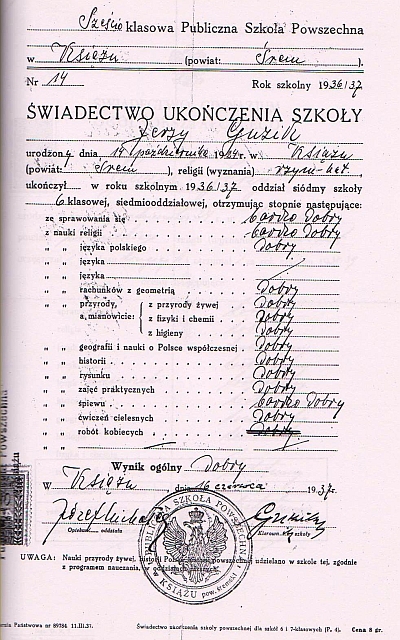 Sześcio klasowa Publiczna Szkoła Powszechna
w Książu (powiat: Śrem ).
Nr 14 Rok szkolny 1936/37
ŚWIADECTWO UKOŃCZENIA SZKOŁY
Jerzy Guzik
urodzony dnia 14 października 1924 r. w Książu
(powiat: Śrem ), religii (wyznania) rzym-kat.
ukończył w roku szkolnym 1936/37. oddział siódmy szkoły
6 klasowej, siedmiooddziałowej, otrzymując stopnie następujące:
ze sprawowania się bardzo dobry
z nauki religii bardzo dobry
„ „ języka polskiego dobry
„ „ języka
„ „ języka
„ „ rachunków z geometrją dobry
„ „ przyrody, z przyrody żywej dobry
a mianowicie: z fizyki i chemii dobry
z higieny dobry
„ „ geografii i nauki o Polsce współczesnej dobry
„ „ historii dobry
„ „ rysunku dobry
„ „ zajęć praktycznych dobry
„ „ śpiewu bardzo dobry
„ „ ćwiczeń cielesnych dobry
„ „ robót kobiecych dobry
Wynik ogólny dobry
W Książu dnia 16 czerwca 1937 r.
Opiekun oddziału Kierown. szkoły
PUBLICZNA SZKOŁA POWSZECHNA
w KSIĄŻU pow. śremski
UWAGA: Nauki przyrody żywej, historii powszechnej udzielano w szkole tej, zgodnie
z programem nauczania,
Państwowa nr 89784 11.III.37. Świadectwo ukończenia szkoły powszechnej dla szkół 6 i 7-klasowych (P. 4). Cena 8 gr.